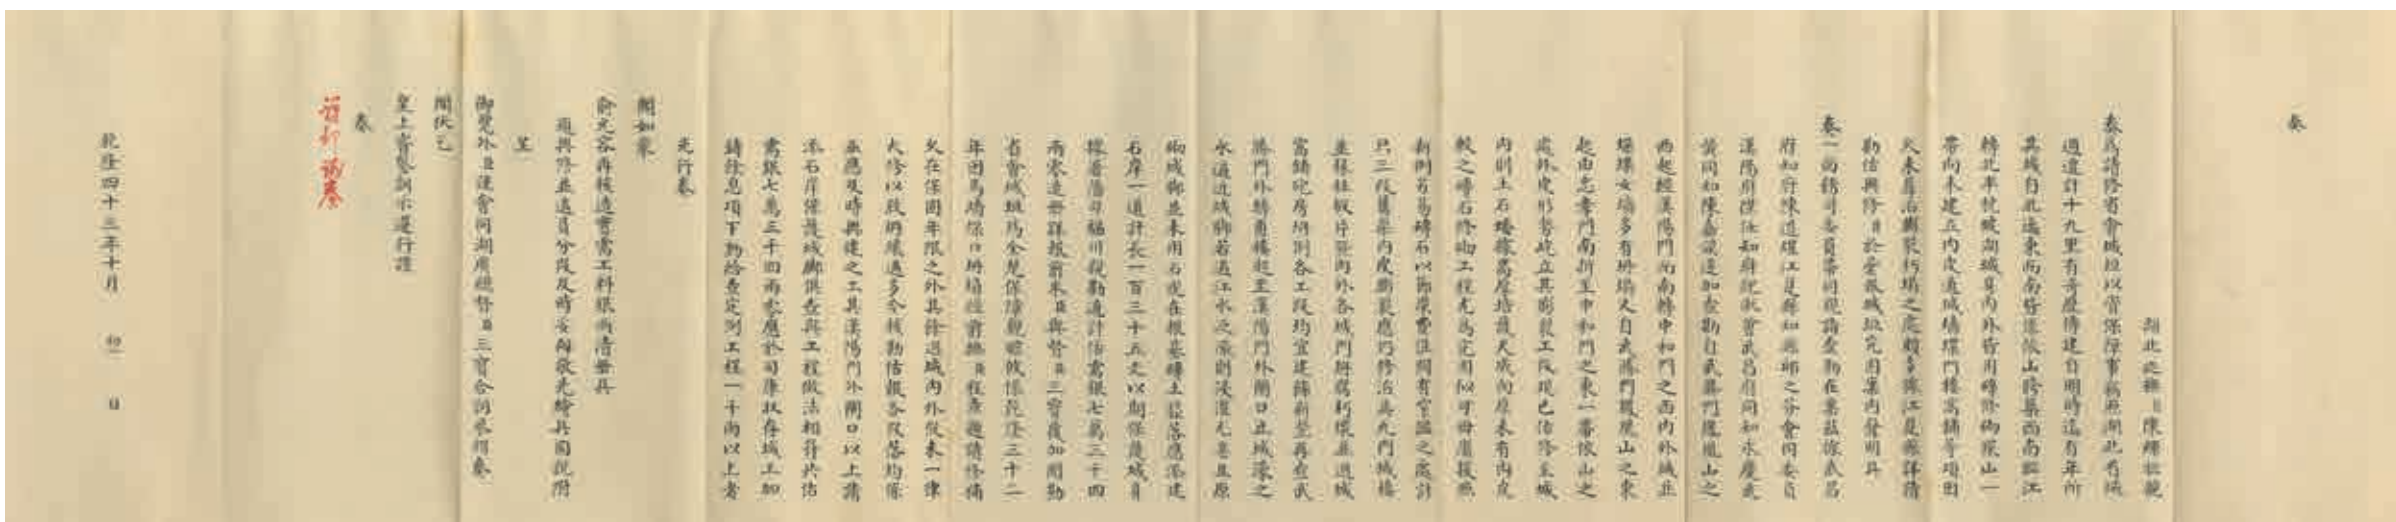 奏
湖北巡撫臣陳輝祖跪
奏為請修省會城垣以資保障事竊照湖北省城
週遭計十九里有奇歷傳建自明時迄有年所
其城自北迤東而南皆逶依山跨築西南臨江
轉北半枕坡湖城身內外皆用磚修砌依山一
帶向未建立內皮連城墻垛門樓窩鋪等項因
久未葺治鼓裂朽塌之處頗多據江夏縣詳請
勘估興修臣於查報城垣完固案內聲明具
奏一面飭司委員籌司親詣查勘在案茲據武昌
府知府陳道煃江夏縣知縣邱之芬會同委員
西起經漢陽門而南轉中和門之西內外城並
垛堞女墻多有坍塌又自武勝門鳳凰山之東
起由忠孝門南折至中和門之東一帶依山之
處外皮形勢屹立其膨裂工段現已估修至城
內則土石墻綠高厚培護天成向原未有內皮
較之磚石修砌工程尤為完固似可毋庸援照
新例省易磚石以節糜費僅間有空隘之處計
只二段舊築內皮鼓裂應仍修治其九門城樓
並梁柱板片暨內外各城門
窩鋪砲房
勝門外轉角樓起至漢陽門外閘口止城濠之
水逼近城腳若遇江水泛漲則浸灌尤甚且原
砌城腳並未用石現在根基磚土
石岸一道計長一百三十五丈以期保護城身
據署藩司福川親勘通計估需銀七萬三千四
兩零造冊詳報前來臣與督臣三寶復加閱勘
省會城垣為全楚保障觀瞻攸係乾隆三十二
年因馬墻保口坍塌經前撫臣程燾題請修補
久在保固年限之外其餘週城內外從未一律
大修以致坍壞過多今核勘估報各段落均係
亟應及時興建之工其漢陽門外閘口以上請
添石岸保護城腳俱查與工程做法相符共估
需銀七萬三千四兩零應於司庫收存城工加
鑄餘息項下動給查定例工程一千兩以上者
先行奏
聞如蒙
俞允容再核造會需工料銀兩清冊具
題興修並遴員分段及時妥辦敬先繪具圖說附
呈
御覽外臣謹會同湖廣總督臣三寶合詞恭摺奏
聞伏乞
皇上睿鑒訓示遵行謹
奏
該部議奏
乾隆四十三年十月 初 日